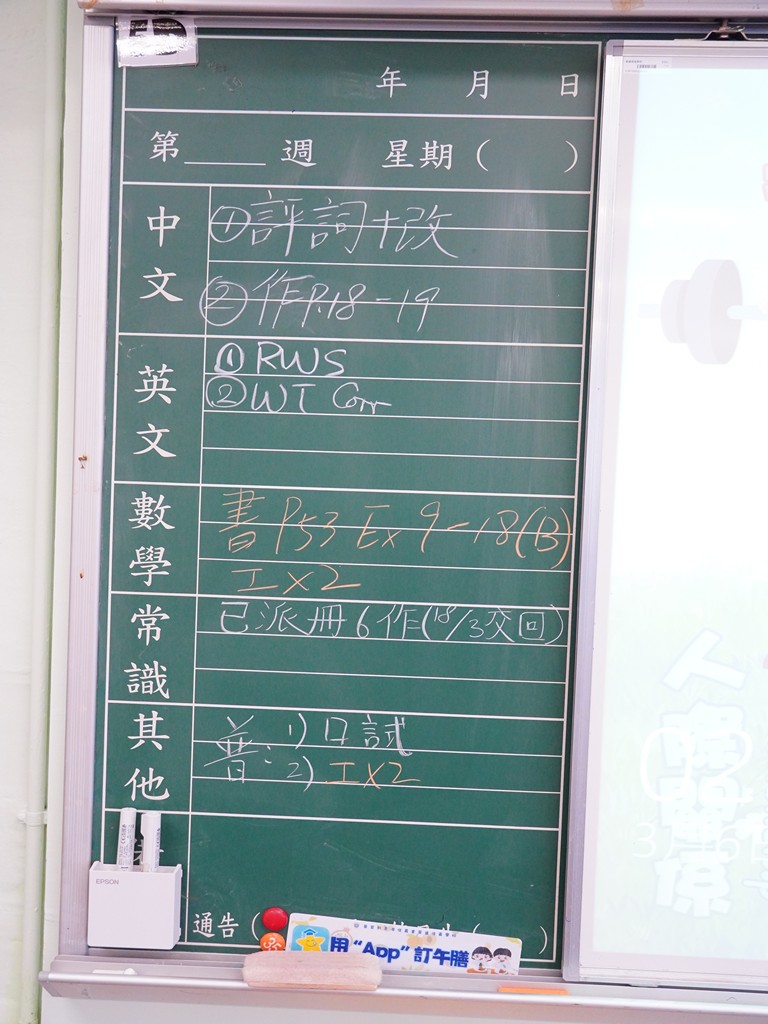 年 月 日
第____週 星期( )
中文
①評詞+改
②作P.18-19
英文
① RWS
② WT Corr
數學
書 P53 Ex 9-18(B)
工x2
常識
已派冊6作(18/3交回)
其他
普: 1) 口試
2) 工x2
EPSON
通告(
用“App”訂午膳
人際關係